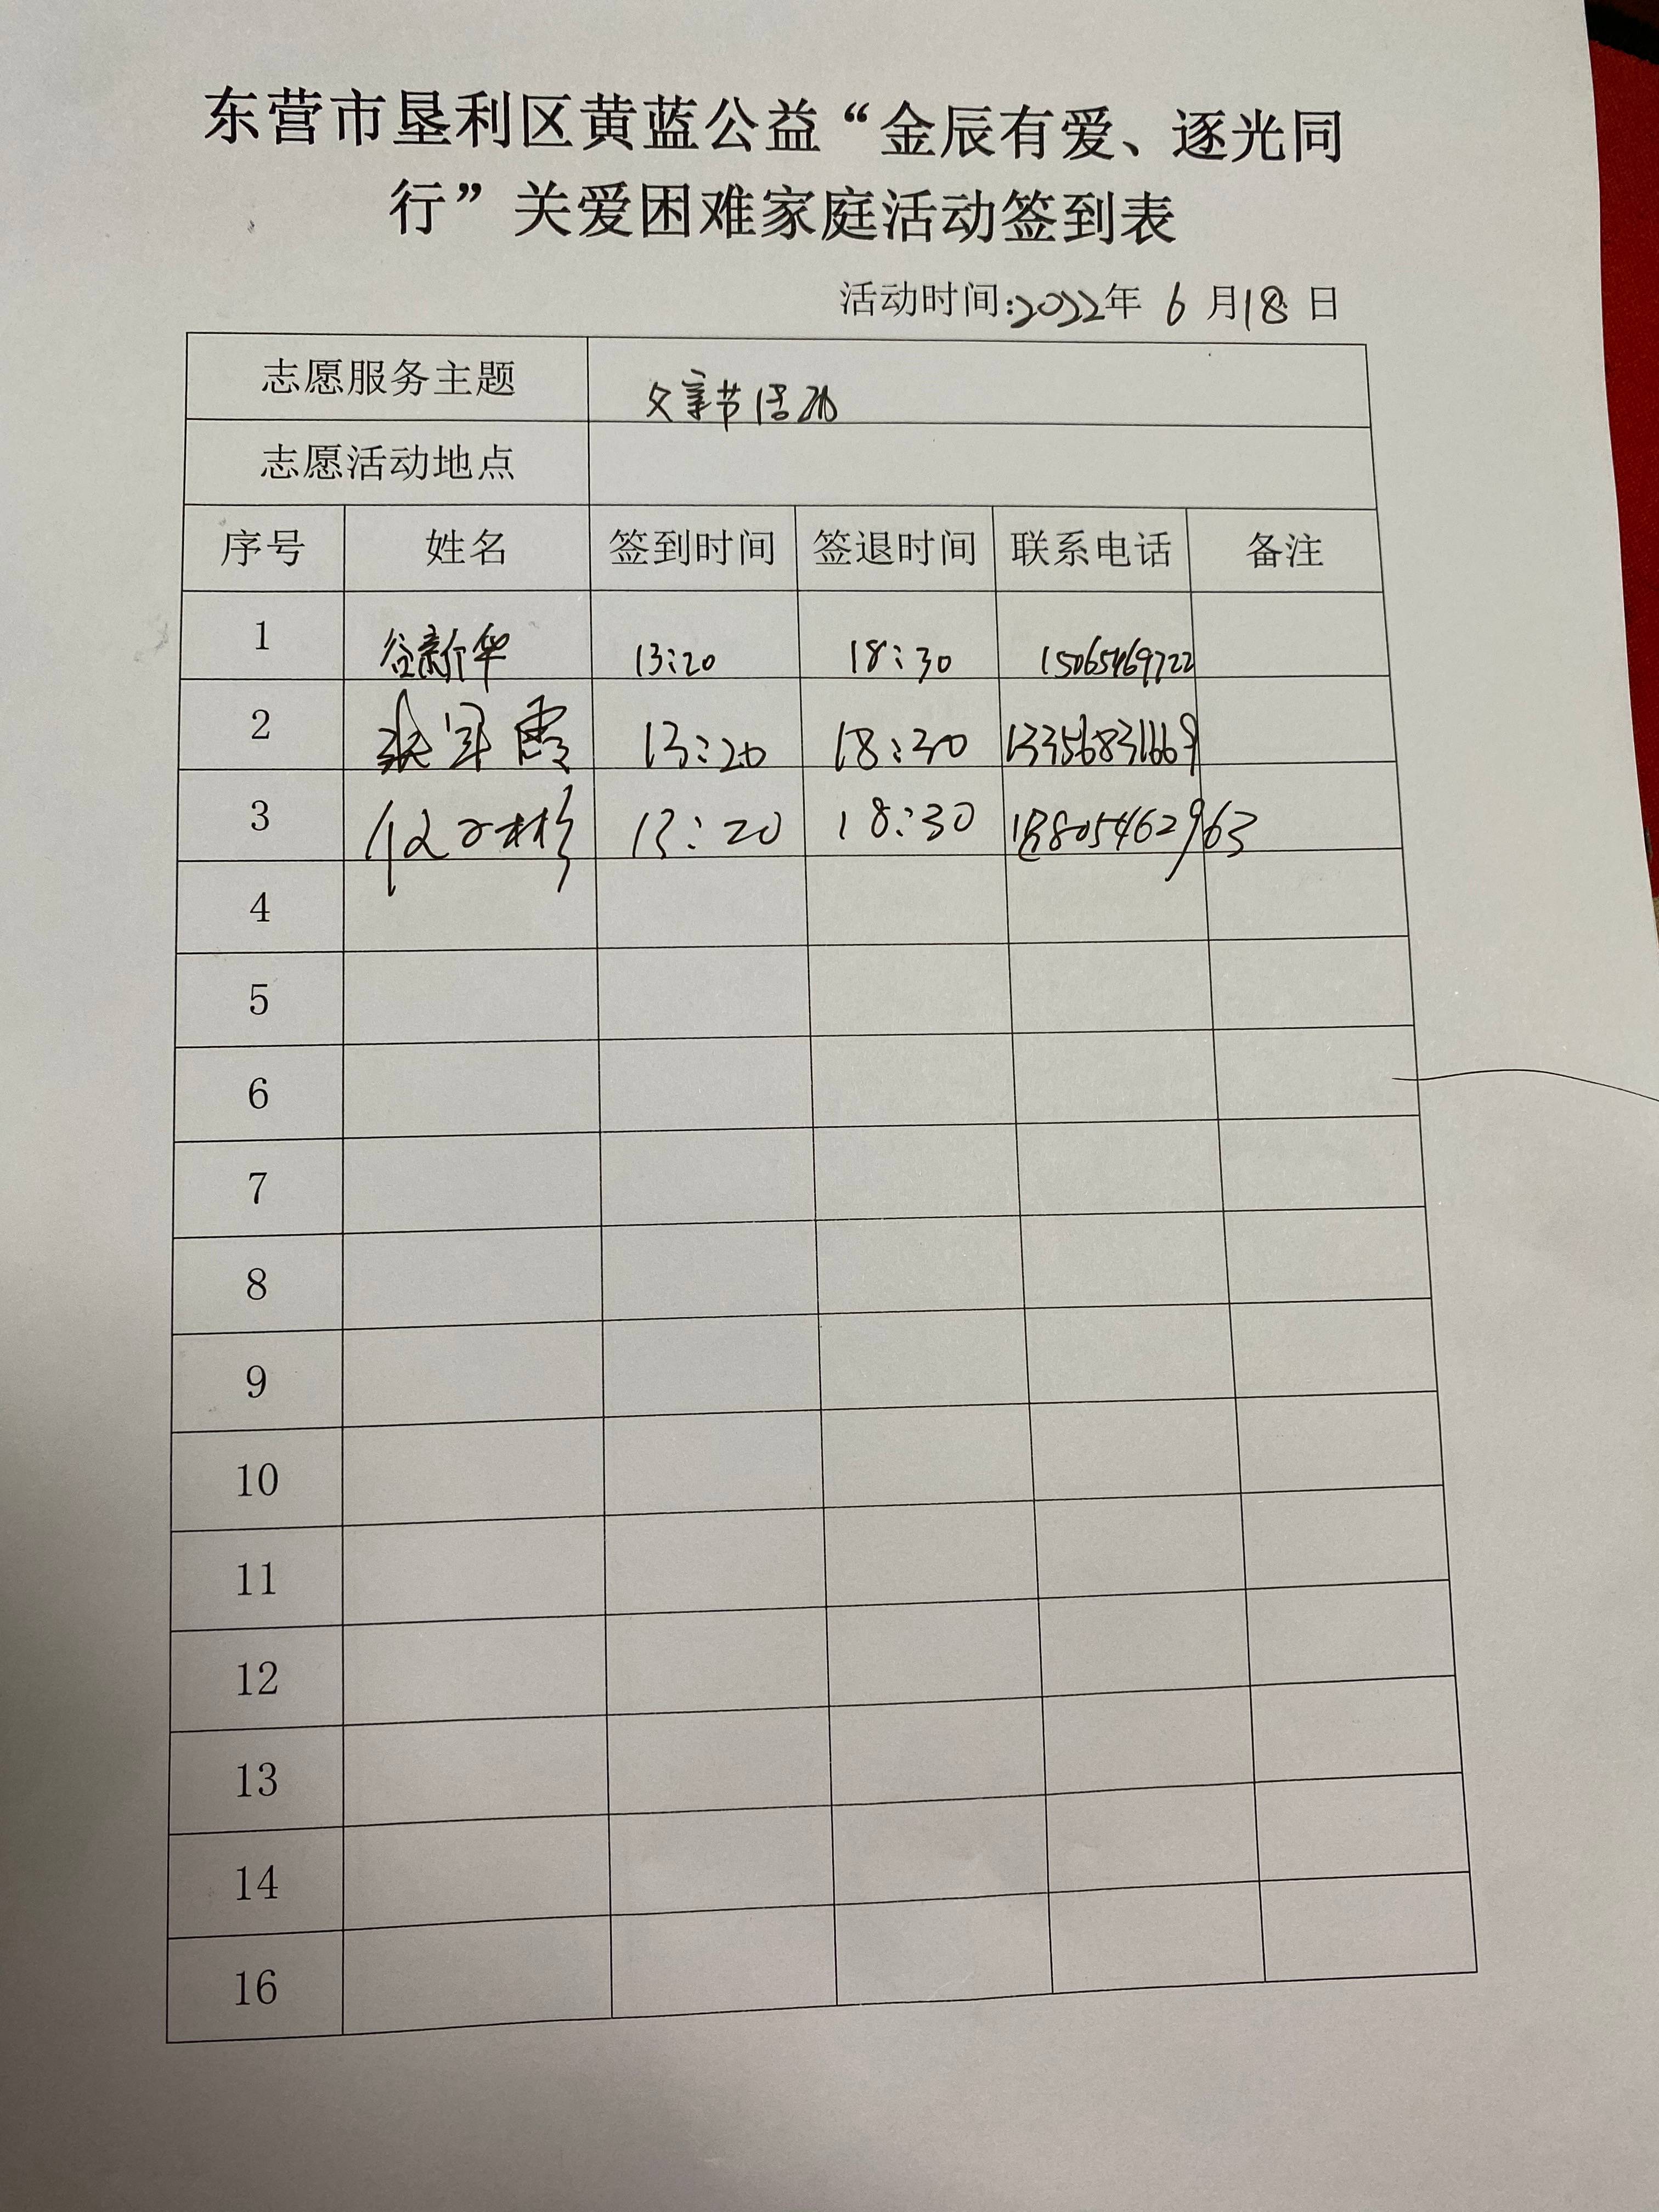 东营市垦利区黄蓝公益“金辰有爱、逐光同
行”关爱困难家庭活动签到表
活动时间:2022年 6 月18 日
志愿服务主题 父亲节活动
志愿活动地点
序号 姓名 签到时间 签退时间 联系电话 备注
1 谷新华 13:20 18:30 15065469722
2 13:20 18:30 13356831669
3 13:20 18:30
4
5
6
7
8
9
10
11
12
13
14
16